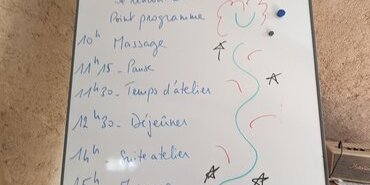 Point programme
10h Massage
11h15 - Pause
11h30 - Temps d'atelier
12h30 - Déjeûner
14h - Suite atelier
15h